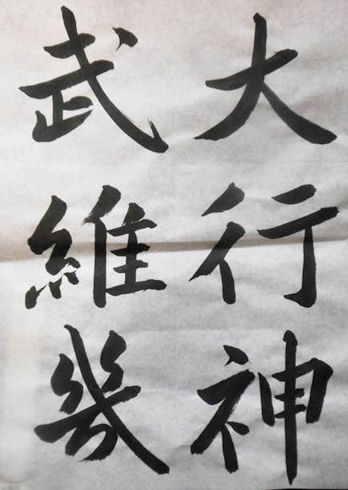 大行神
武維幾